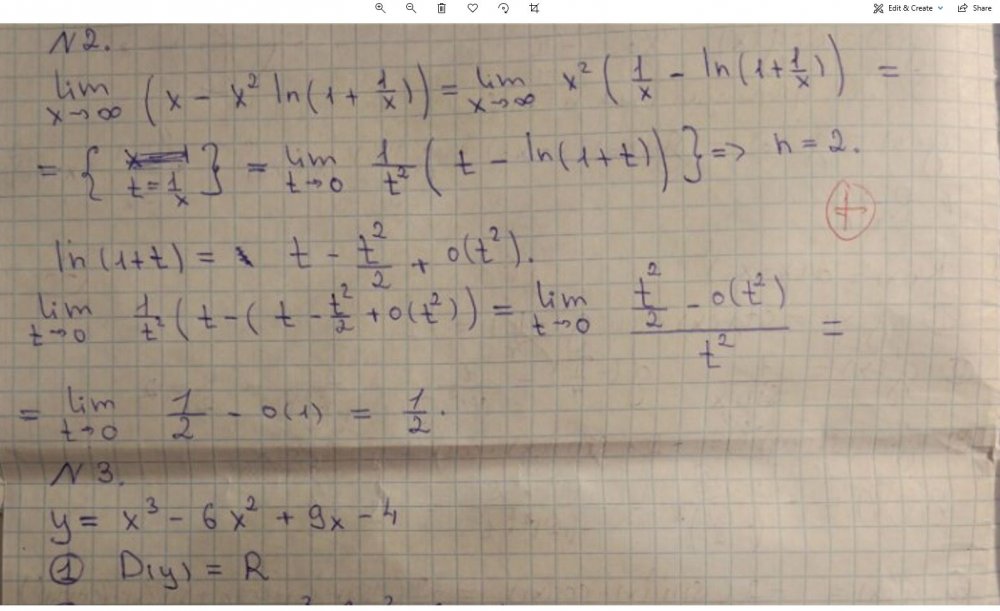 Edit & Create Share
N2.
lim x→∞ (x - x² ln(1 + 1/x)) = lim x→∞ x² (1/x - ln(1 + 1/x)) =
= { t = 1/x } = lim t→0 1/t² (t - ln(1+t)) } => n = 2.
+
ln(1+t) = t - t²/2 + o(t²).
lim t→0 1/t² (t - (t - t²/2 + o(t²)) = lim t→0 (t²/2 - o(t²))/t² =
= lim t→0 1/2 - o(1) = 1/2.
N3.
y = x³ - 6x² + 9x - 4
① D(y) = R